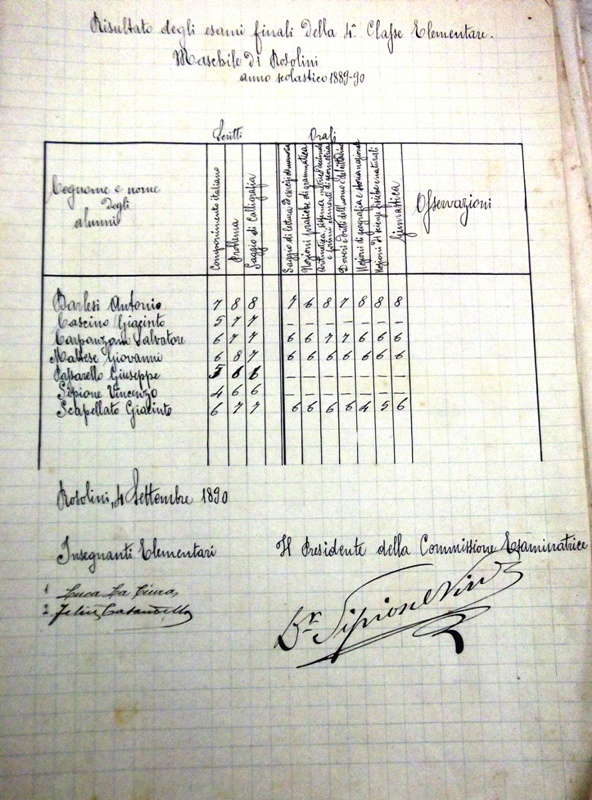 Risultato degli esami finali della 4ª Classe Elementare.
Maschile di Rosolini
anno scolastico 1889-90
Scritti Orali
Cognome e nome degli alunni Componimento italiano Problema Saggio di Calligrafia Saggio di lettura ed esercizi di memoria Nozioni pratiche di grammatica Aritmetica, sistema metrico decimale e primi elementi di geometria Doveri e diritti dell'uomo e del cittadino Nozioni di geografia e storia nazionale Nozioni di scienze fisiche e naturali Ginnastica Osservazioni
Barlesi Antonio 7 8 8 7 6 8 7 8 8 8
Cascino Giacinto 5 7 7 – – – – – – –
Carpanzano Salvatore 6 7 7 6 6 7 7 6 6 6
Maltese Giovanni 6 8 7 6 6 6 6 6 6 6
Passarello Giuseppe 5 6 6 – – – – – – –
Sipione Vincenzo 4 6 6 – – – – – – –
Scapellato Giacinto 6 7 7 6 6 6 6 4 5 6
Rosolini, 4 Settembre 1890
Insegnanti Elementari Il Presidente della Commissione Esaminatrice
1 Luca La Ciura
2 Felice
Dr. Sipione